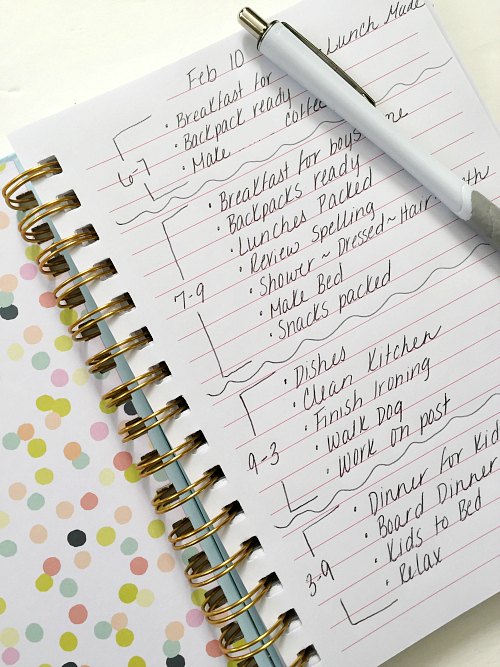 Feb 10
Lunch Made
• Breakfast for
• Backpack ready
• Make coffee
6-7
• Breakfast for boys
• Backpacks ready
• Lunches Packed
• Review Spelling
• Shower ~ Dressed ~ Hair
• Make Bed
• Snacks packed
7-9
• Dishes
• Clean Kitchen
• Finish Ironing
• Walk Dog
• Work on post
9-3
• Dinner for Kids
• Board Dinner
• Kids to Bed
• Relax
3-9